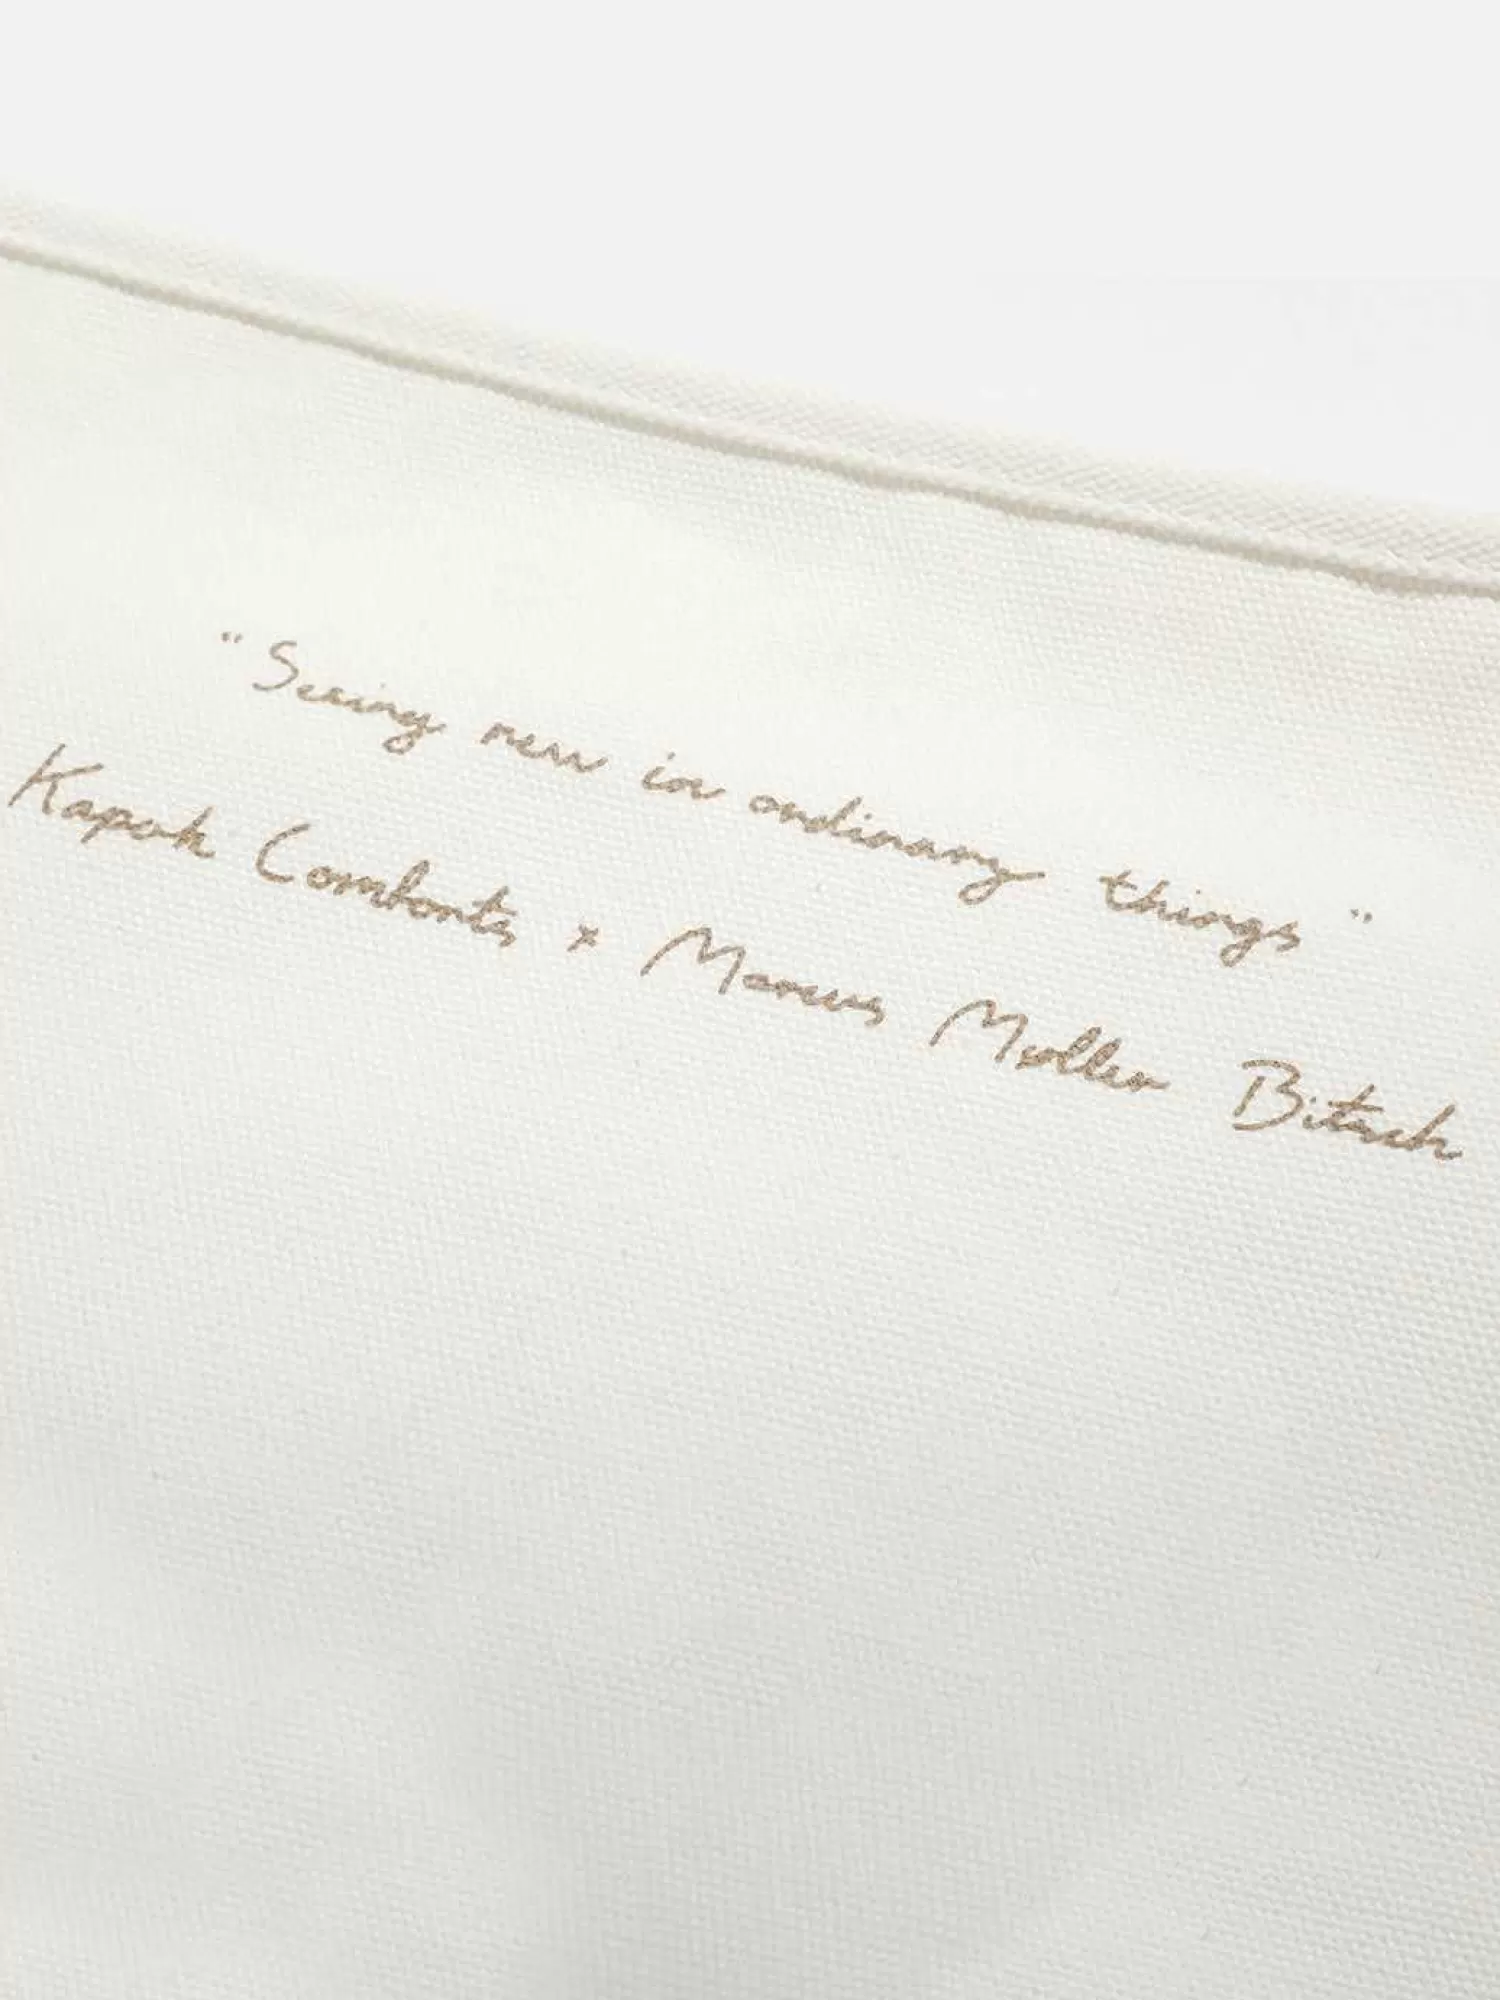 "Seeing new in ordinary things"
Kapok Comforts x Marcus Møller Bitsch